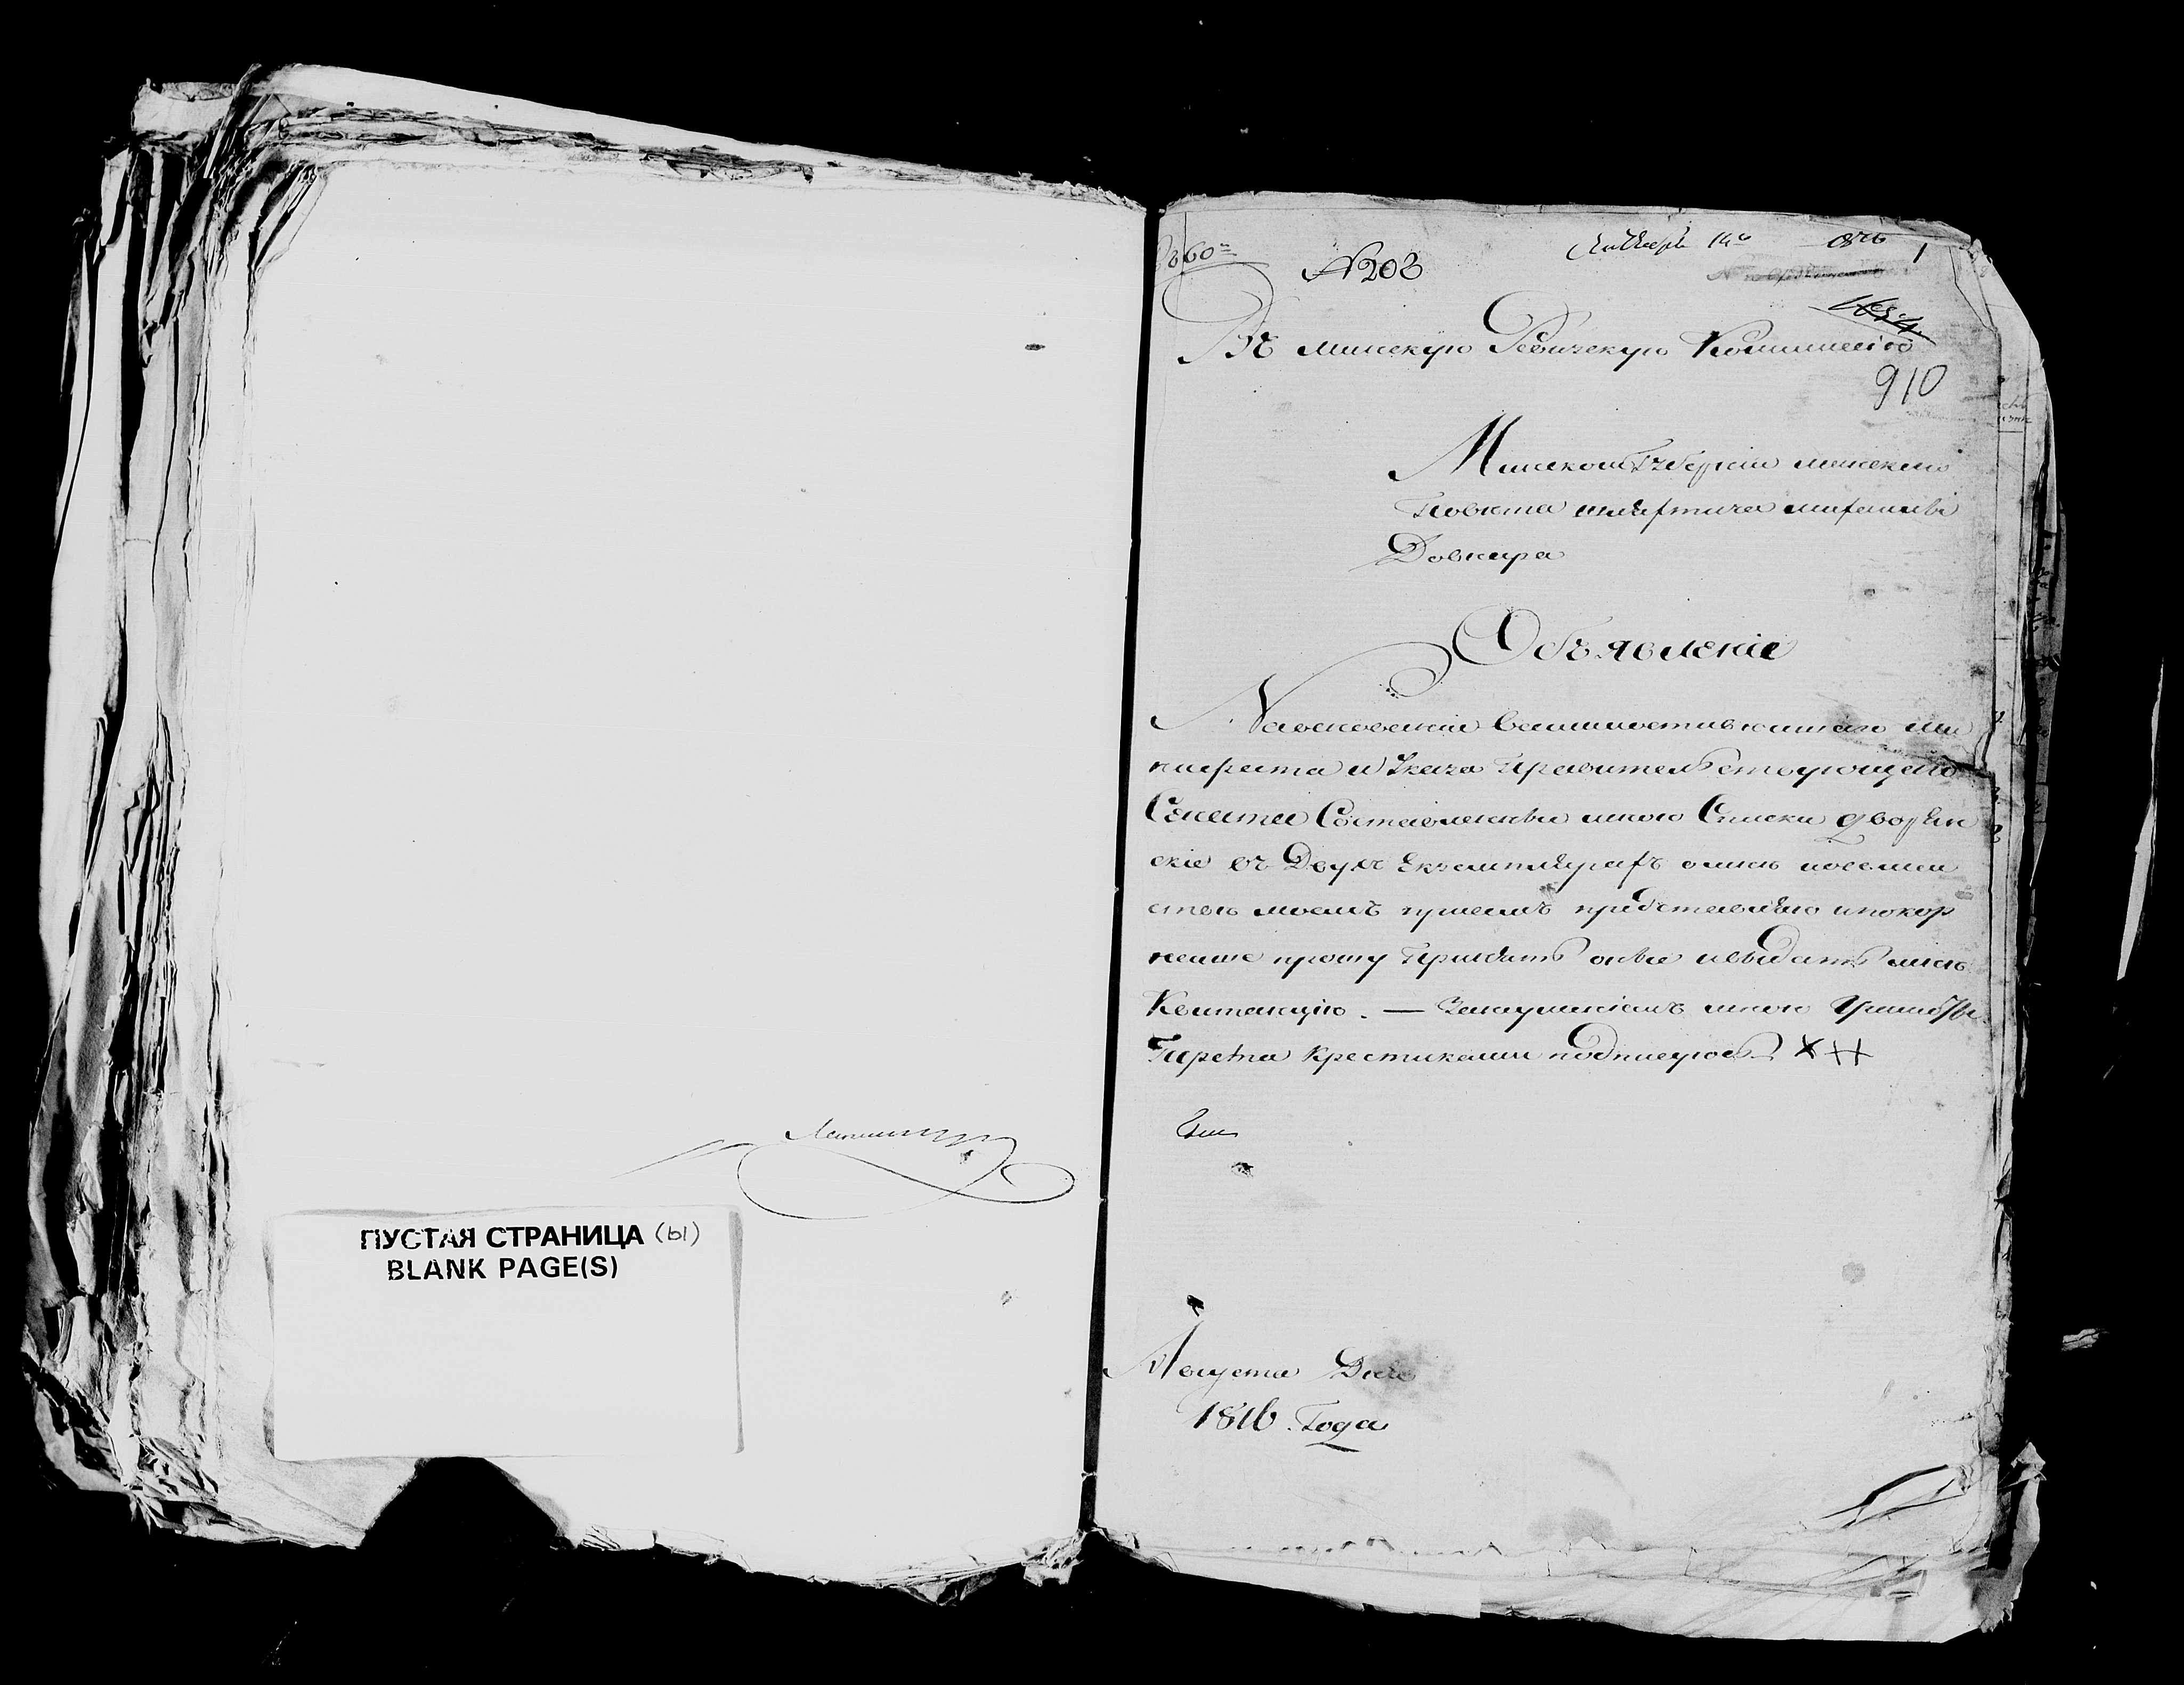 ПУСТАЯ СТРАНИЦА (ы)
BLANK PAGE(S)
№ 203
1
Въ минскую Ревизскую Коммиссію
910
Минской Губерніи минскаго
Повета шляхтича
Довнара
Объявленіе
Наосновании Всемилостивейшаго ма
нифеста и Указа Правительствующаго
Сената Составленные мною Списки дворян
скіе въ Двухъ Екземплярахъ омне исемей
стве моемъ присемъ представляю ипокор
нейше прошу Принять оные ивыдать мне
Квитанцію. — Занеуменіемъ мною Грамоты
Тремя Крестиками подписуюсь XXX
Августа Дня
1816 Года